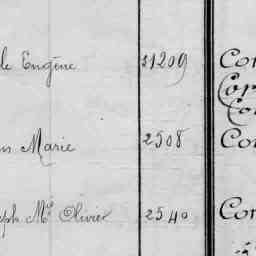 le Eugène 31209 Con
Cor
Con
ns Marie 2508 Con
eph Mie Olivier 2540 Con
à